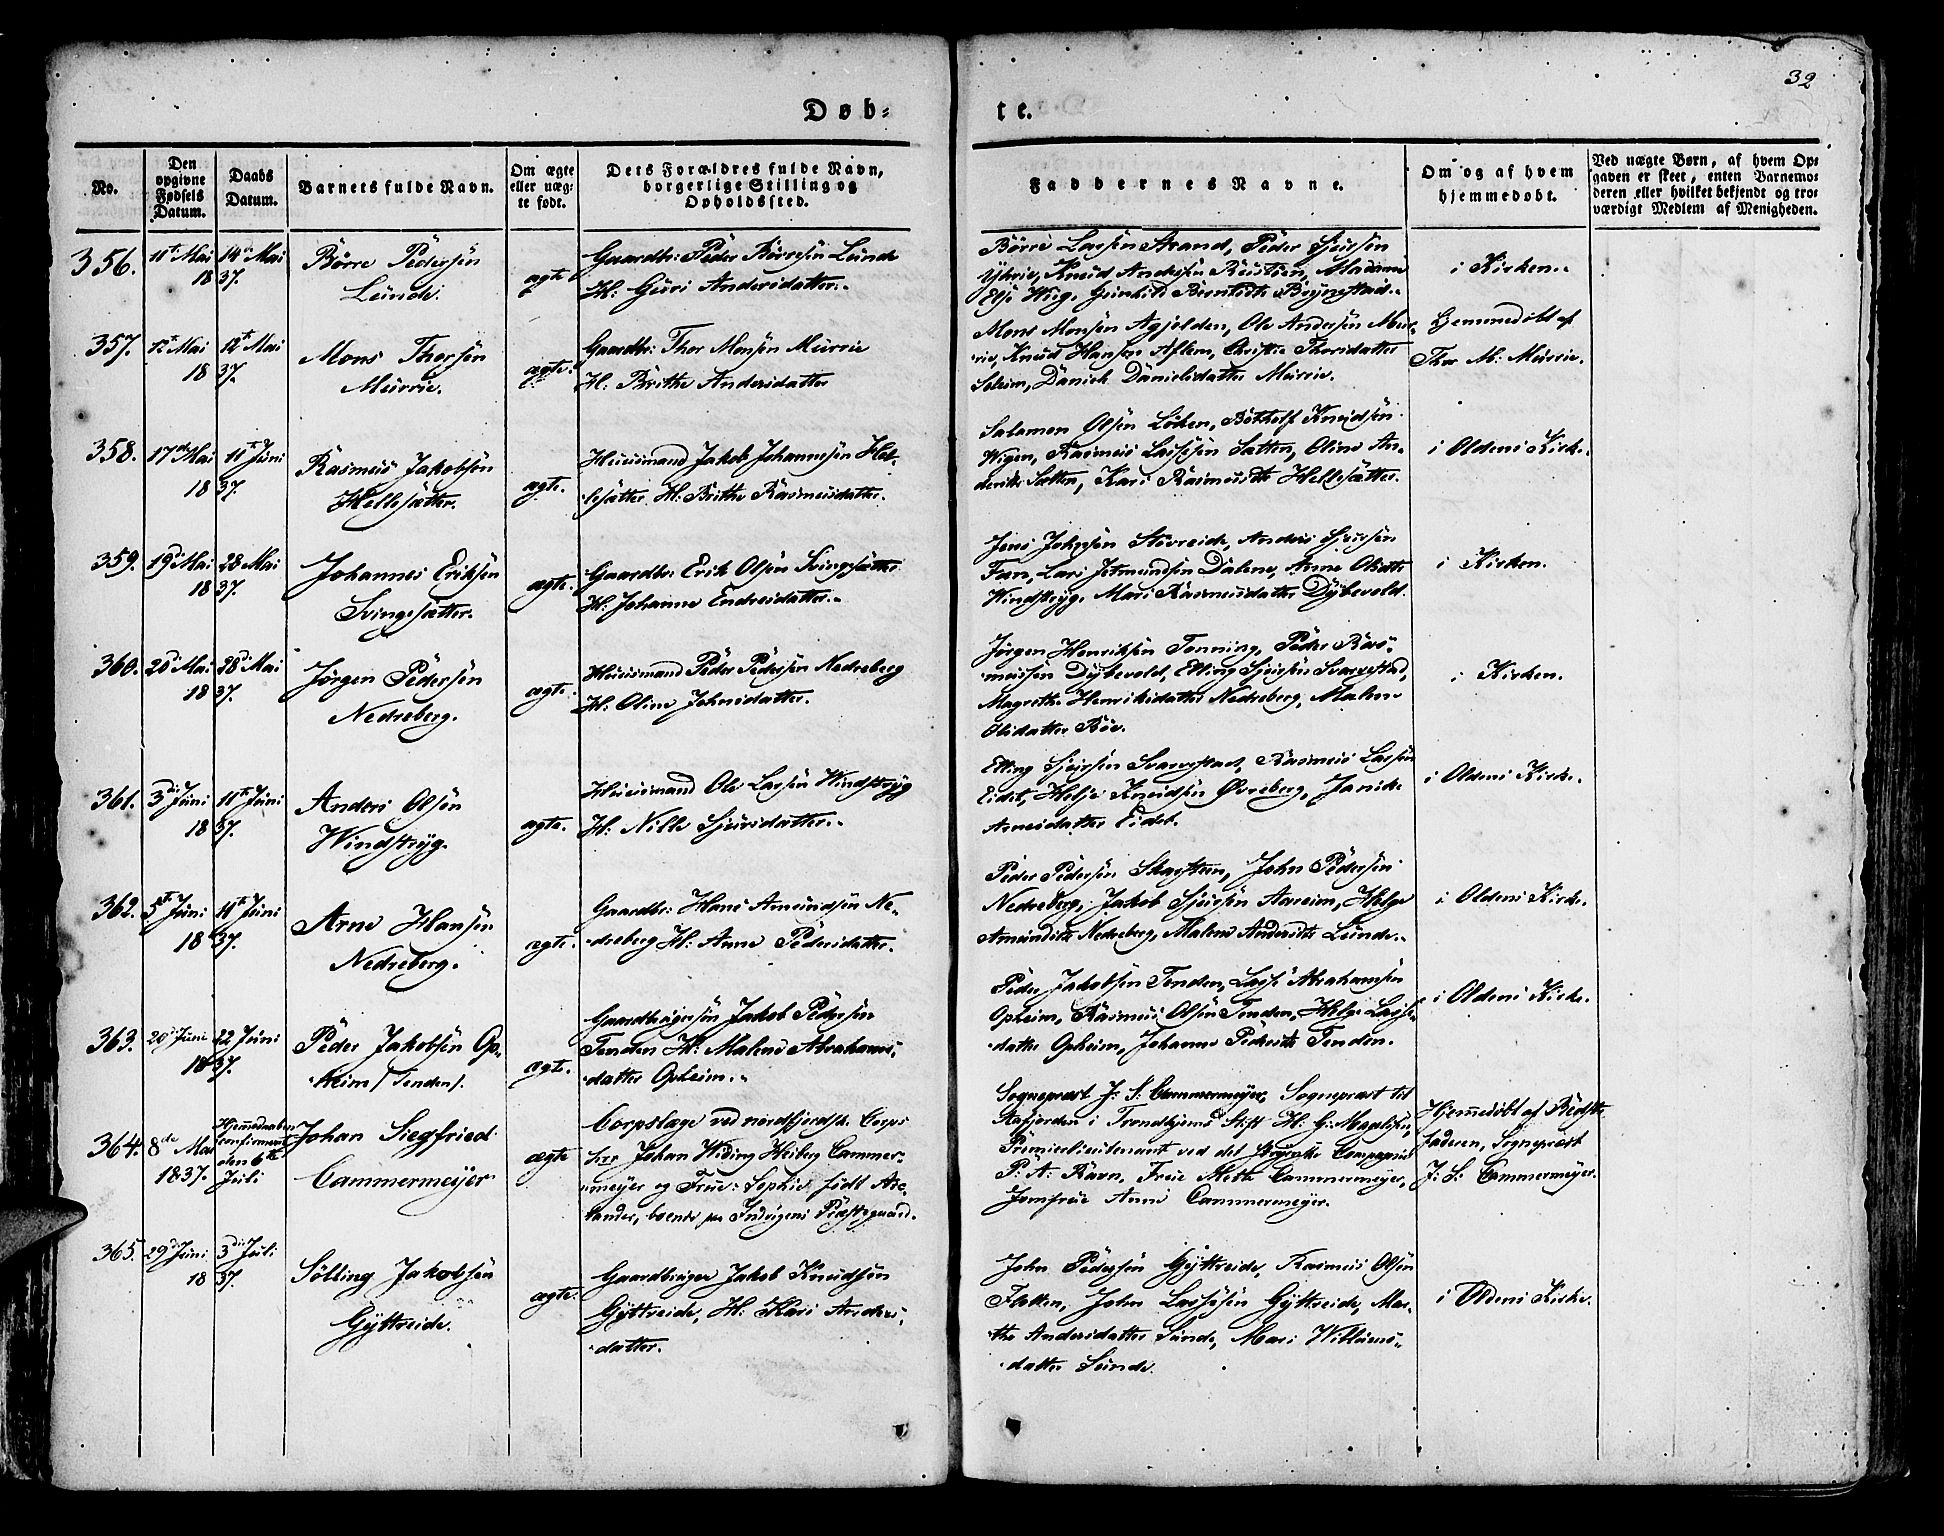 32
Døb-
te.
No.
Den opgivne Fødsels Datum.
Daabs Datum.
Barnets fulde Navn.
Om ægte eller uægte født.
Dets Forældres fulde Navn, borgerlige Stilling og Opholdssted.
Faddernes Navne.
Om og af hvem hjemmedøbt.
Ved uægte Børn, af hvem Opgaven er skeet, enten Barnemoderen eller hvilket bekjendt og troværdigt Medlem af Menigheden.
356. 11te Mai 1837. 14de Mai
Börre Pedersön
Lunde.
ægte
Gaardbr: Peder Börresön Lunde
H: Guri Andersdatter.
Börre Lassön Strand, Peder Sjursön
Yhrie, Knud Andersön Madame
Else Wiig, Brynestad.
i Kirken.
357. 12te Mai 1837. 12te Mai
Mons Thorsön
Murrie.
ægte.
Gaardbr: Thor Monsön Murrie
H: Brithe Andersdatter
Mons Monsön Agjelden, Ole Andersön Mur-
rie, Knud Hansön Aflem, Christie Thorsdatter
Solem, Danielsdatter Murrie.
Hjemmedöbt af
Thor M: Murrie.
358. 17de Mai 1837. 11te Juni
Rasmus Jakobsön
Hellesætter.
ægte.
Huusmand Jakob Johannesön Hel-
lesætter H: Brithe Rasmusdatter.
Salamon Olsön Löken, Knudsön
Wigen, Rasmus Lassesön Sætten, Oline An-
Sætten, Kari Rasmusdtr Hellesætter.
i Oldens Kirke.
359. 19de Mai 1837. 28de Mai
Johannes Eriksön
Svingesætter.
ægte.
Gaardbr: Erik Olsön Svingesætter
H: Johanne Endresdatter.
Jens Johnsön Andres Sjursön
Lars Jetmundsön Dalene, Anne Olsdtr
Windstryg, Mari Rasmusdatter Dybevold.
i Kirken.
360. 20de Mai 1837. 28de Mai
Jørgen Pedersön
Nedreberg.
ægte.
Huusmand Peder Pedersön Nedreberg
H: Oline Johnsdatter.
Jørgen Henriksön Tonning, Peder Ras-
musön Dybevold, Elling Sjursön Svarestad,
Magrethe Henriksdatter Nedreberg, Malene
Olsdatter Böe.
i Kirken.
361. 3de Juni 1837. 11te Juni
Anders Olsön
Windstryg.
ægte.
Huusmand Ole Larsön Windstryg
H: Nille Sjursdatter.
Elling Sjursön Svarestad, Rasmus Larsön
Eidet, Helje Knudsön Øvreberg, Janike
Arnesdatter Eidet.
i Oldens Kirke.
362. 5te Juni 1837. 11te Juni
Arne Hansön
Nedreberg.
ægte.
Gaardbr: Hans Amundsön Ne-
dreberg H: Anne Pedersdatter.
Peder Pedersön Skarsteen, John Pedersön
Nedreberg, Jakob Sjursön Aareim, Helge
Amundsdtr Nedreberg, Malene Andersdtr Lunde.
i Oldens Kirke.
363. 20de Juni 1837. 22 Juni
Peder Jakobsön Op-
heim (Tenden).
ægte.
Gaardbrugersön Jakob Pedersön
Tenden H: Malene Abrahams-
datter Opheim.
Peder Jakobsön Tenden, Lasse Abrahamsön
Opheim, Rasmus Olsön Tenden, Helge Lasse-
datter Opheim, Johanne Pedersdtr Tenden.
i Oldens Kirke.
364. 8de Mai 1837. Hjemmedaaben
confirmeret
den 6te
Juli
Johan Siegfried
Cammermeÿer
ægte
Corpslæge ved nordfjordske Corps
Herr Johan Widing Heiberg Cammer-
meÿer og Frue: Sophie född Are-
lander, boende paa Indvigens Præstegaard.
Sogneprest J: S: Cammermeÿer, Sogneprest til
i Trondhjems Stift H: G: Magelsen,
Premierlieutenant ved det Compagnie
P: A: Ravn, Frue Mette Cammermeÿer,
Jomfrue Anne Cammermeÿer.
Hjemmedöbt af Bedste-
faderen, Sogneprest
J: S: Cammermeÿer.
365. 29de Juni 1837. 3de Juli
Sölling Jakobsön
Gÿttreide.
ægte.
Gaardbruger Jakob Knudsön
Gÿttreide, H: Kari Anders-
datter.
John Pedersön Gÿttreide, Rasmus Olsön
Flatten, John Lassesön Gÿttreide, Mar-
the Andersdatter Sunde, Mari Willums-
datter Sunde.
i Oldens Kirke.